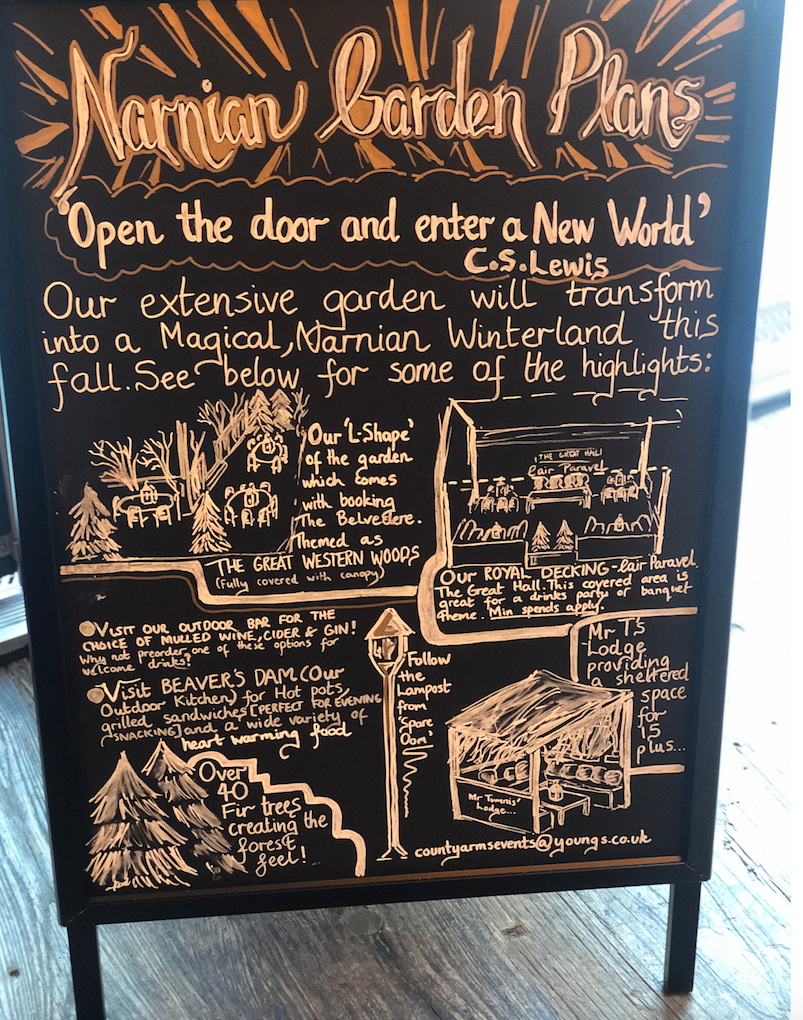 Narnian Garden Plans
'Open the door and enter a New World'
C.S.Lewis
Our extensive garden will transform
into a Magical, Narnian Winterland this
fall. See below for some of the highlights:
Our 'L-Shape'
of the garden
which comes
with booking
The Belvedere.
Themed as
THE GREAT WESTERN WOODS
(Fully covered with canopy)
THE GREAT HALL
Cair Paravel
Our ROYAL DECKING - Cair Paravel.
The Great Hall. This covered area is
great for a drinks party or banquet
theme. Min spends apply.
VISIT OUR OUTDOOR BAR FOR THE
CHOICE OF MULLED WINE, CIDER & GIN!
Why not preorder one of these options for
welcome drinks!
Visit BEAVER'S DAM (Our
Outdoor Kitchen) for Hot pots,
grilled sandwiches [PERFECT FOR EVENING
SNACKING] and a wide variety of
heart warming food
Follow
the
Lampost
from
'Spare
Oom'
Mr T's
Lodge
providing
a sheltered
space
for
15
plus...
Over
40
Fir trees
creating the
forest
feel!
Mr Tumnus'
Lodge...
countyarmsevents@youngs.co.uk